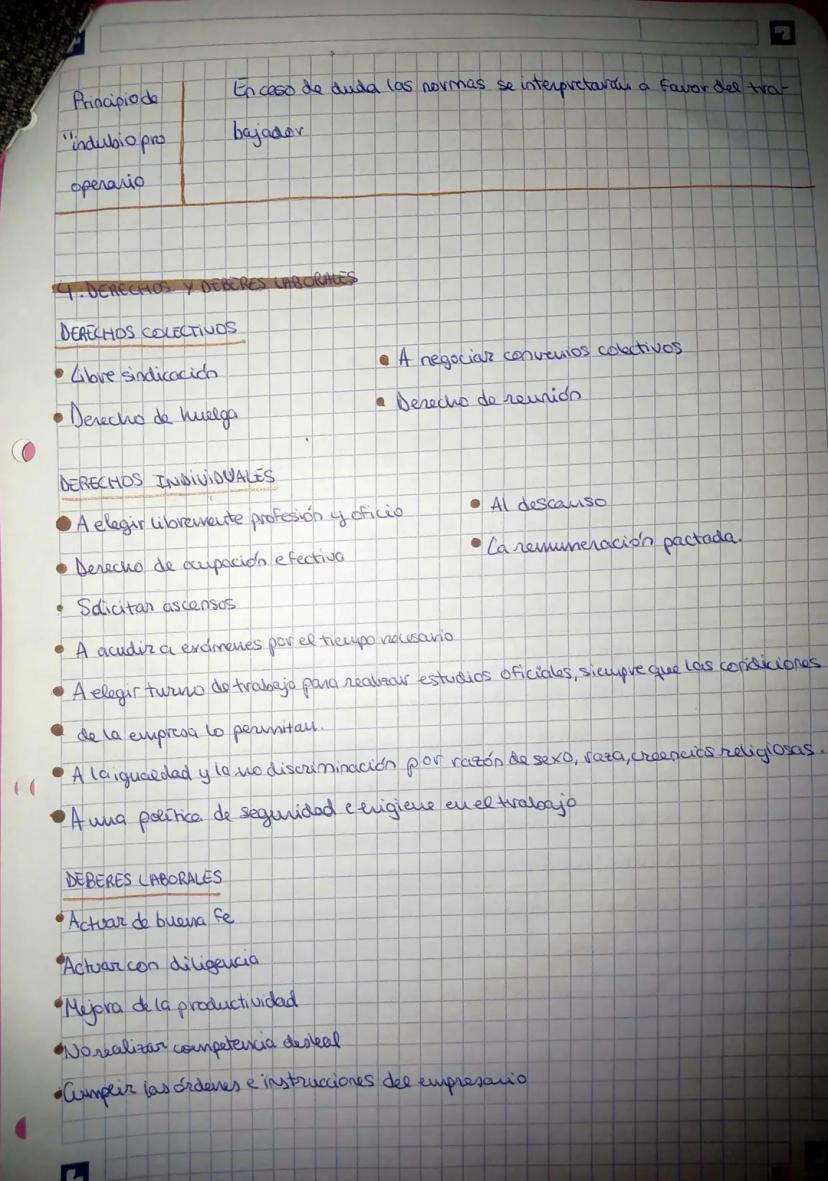 Principio de
"indubio pro
operario
En caso de duda las normas se interpretarán a favor del tra-
bajador
4. DERECHOS Y DEBERES LABORALES
DERECHOS COLECTIVOS
• Libre sindicación
• Derecho de huelga
• A negociar convenios colectivos
• Derecho de reunión
DERECHOS INDIVIDUALES
• A elegir libremente profesión y oficio
• Derecho de ocupación efectiva
• Solicitar ascensos
• Al descanso
• La remuneración pactada.
• A acudir a exámenes por el tiempo necesario
• A elegir turno de trabajo para realizar estudios oficiales, siempre que las condiciones
• de la empresa lo permitan.
• A la igualdad y la no discriminación por razón de sexo, raza, creencias religiosas.
• A una política de seguridad e higiene en el trabajo
DEBERES LABORALES
• Actuar de buena fe
• Actuar con diligencia
• Mejora de la productividad
• No realizar competencia desleal
• Cumplir las órdenes e instrucciones del empresario